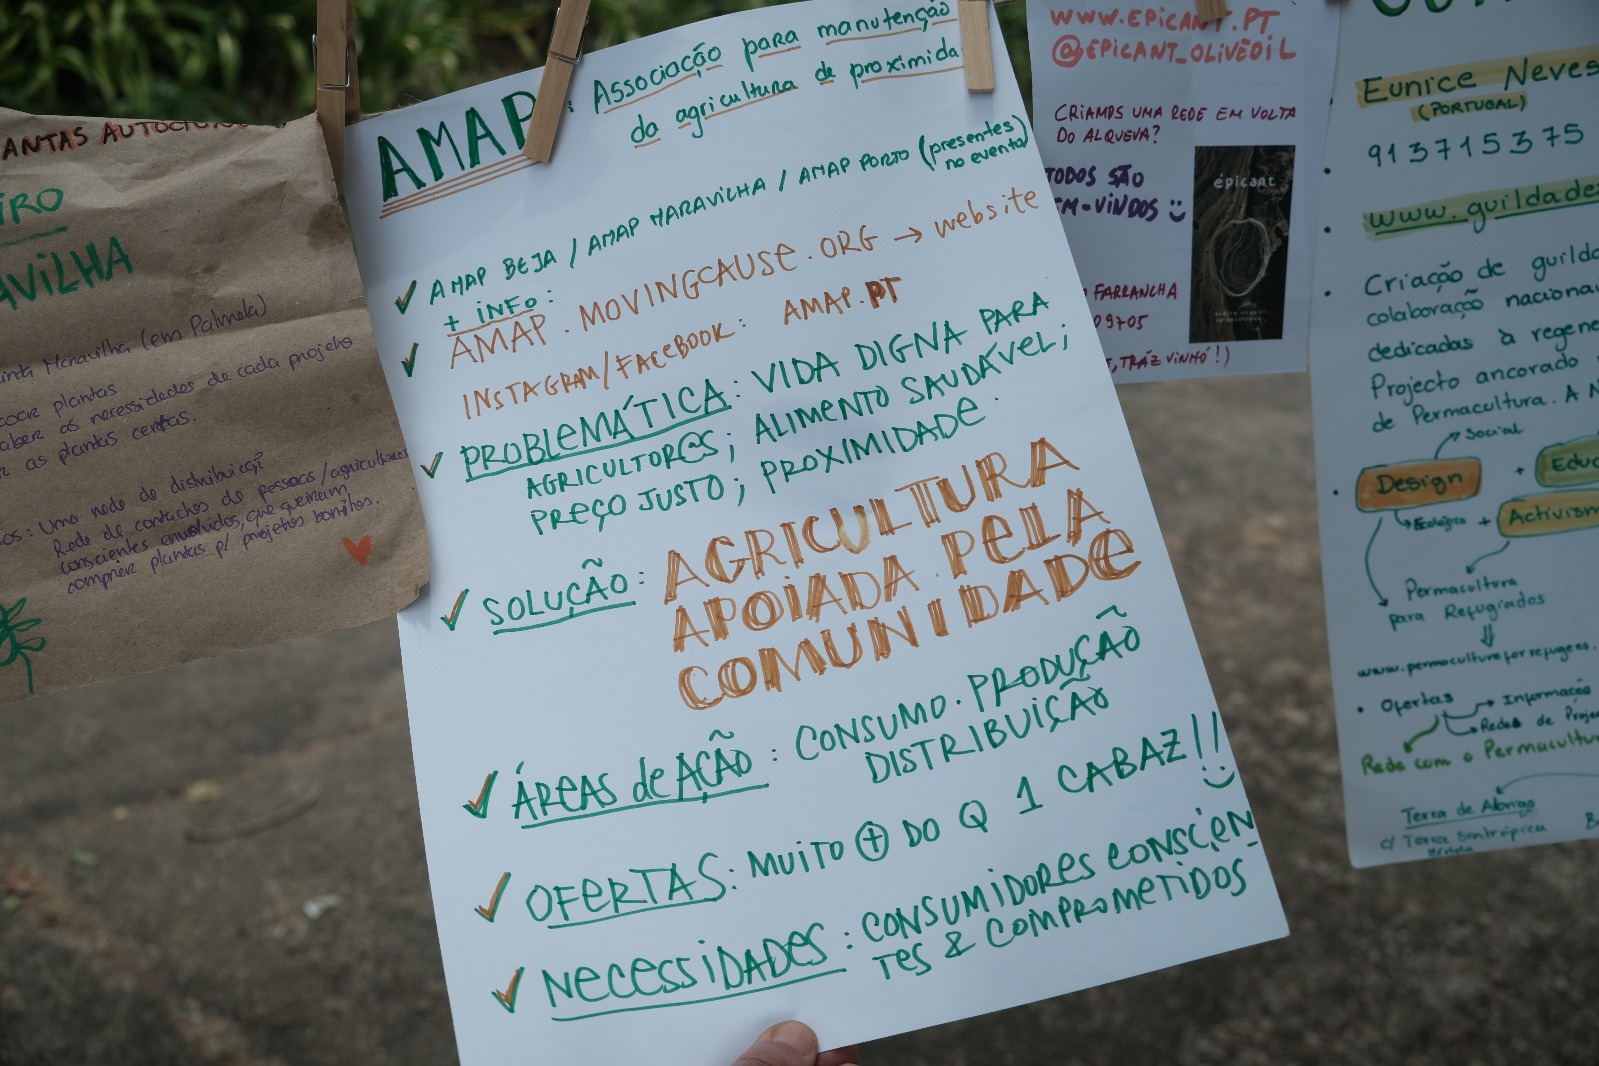 ANTAS AUTÓCTONAS
IRO
AVILHA
inta Maravilha (em Palmela)
plantas
aber as necessidades de cada projeto
as plantas certas.
os: Uma rede de distribuição
Rede de contactos de pessoas/agricultores
conscientes envolvidos, que queiram
comprar plantas p/ projetos bonitos.
AMAP: Associação para manutenção
da agricultura de proximida
AMAP BEJA / AMAP MARAVILHA / AMAP PORTO (presentes
no evento)
+ INFO:
AMAP.MOVINGCAUSE.ORG → website
INSTAGRAM/FACEBOOK: AMAP.PT
PROBLEMÁTICA: VIDA DIGNA PARA
AGRICULTOR@S; ALIMENTO SAUDÁVEL;
PREÇO JUSTO; PROXIMIDADE.
SOLUÇÃO: AGRICULTURA
APOIADA PELA
COMUNIDADE
ÁREAS de AÇÃO: CONSUMO. PRODUÇÃO
DISTRIBUIÇÃO
OFERTAS: MUITO + DO Q 1 CABAZ!!
NECESSIDADES: CONSUMIDORES CONSCIEN-
TES & COMPROMETIDOS
WWW.EPICANT.PT
@EPICANT_OLIVEOIL
CRIAMOS UMA REDE EM VOLTA
DO ALQUEVA?
TODOS SÃO
EM-VINDOS
épicant
FARRANCHA
09705
, TRÁZ VINHO!)
Eunice Neves
(PORTUGAL)
913715375
www.guildades
Criação de guilda
colaboração nacional
dedicadas à regene
Projecto ancorado
de Permacultura. A N
Social
Design + Educ
Ecológico + Activism
Permacultura
para Refugiados
www.permacultureforrefugees.
Ofertas
Informação
Redes de Proje
Rede com o Permacultur
Terra de Abrigo
c/ Terra Sintrópica
Mértola